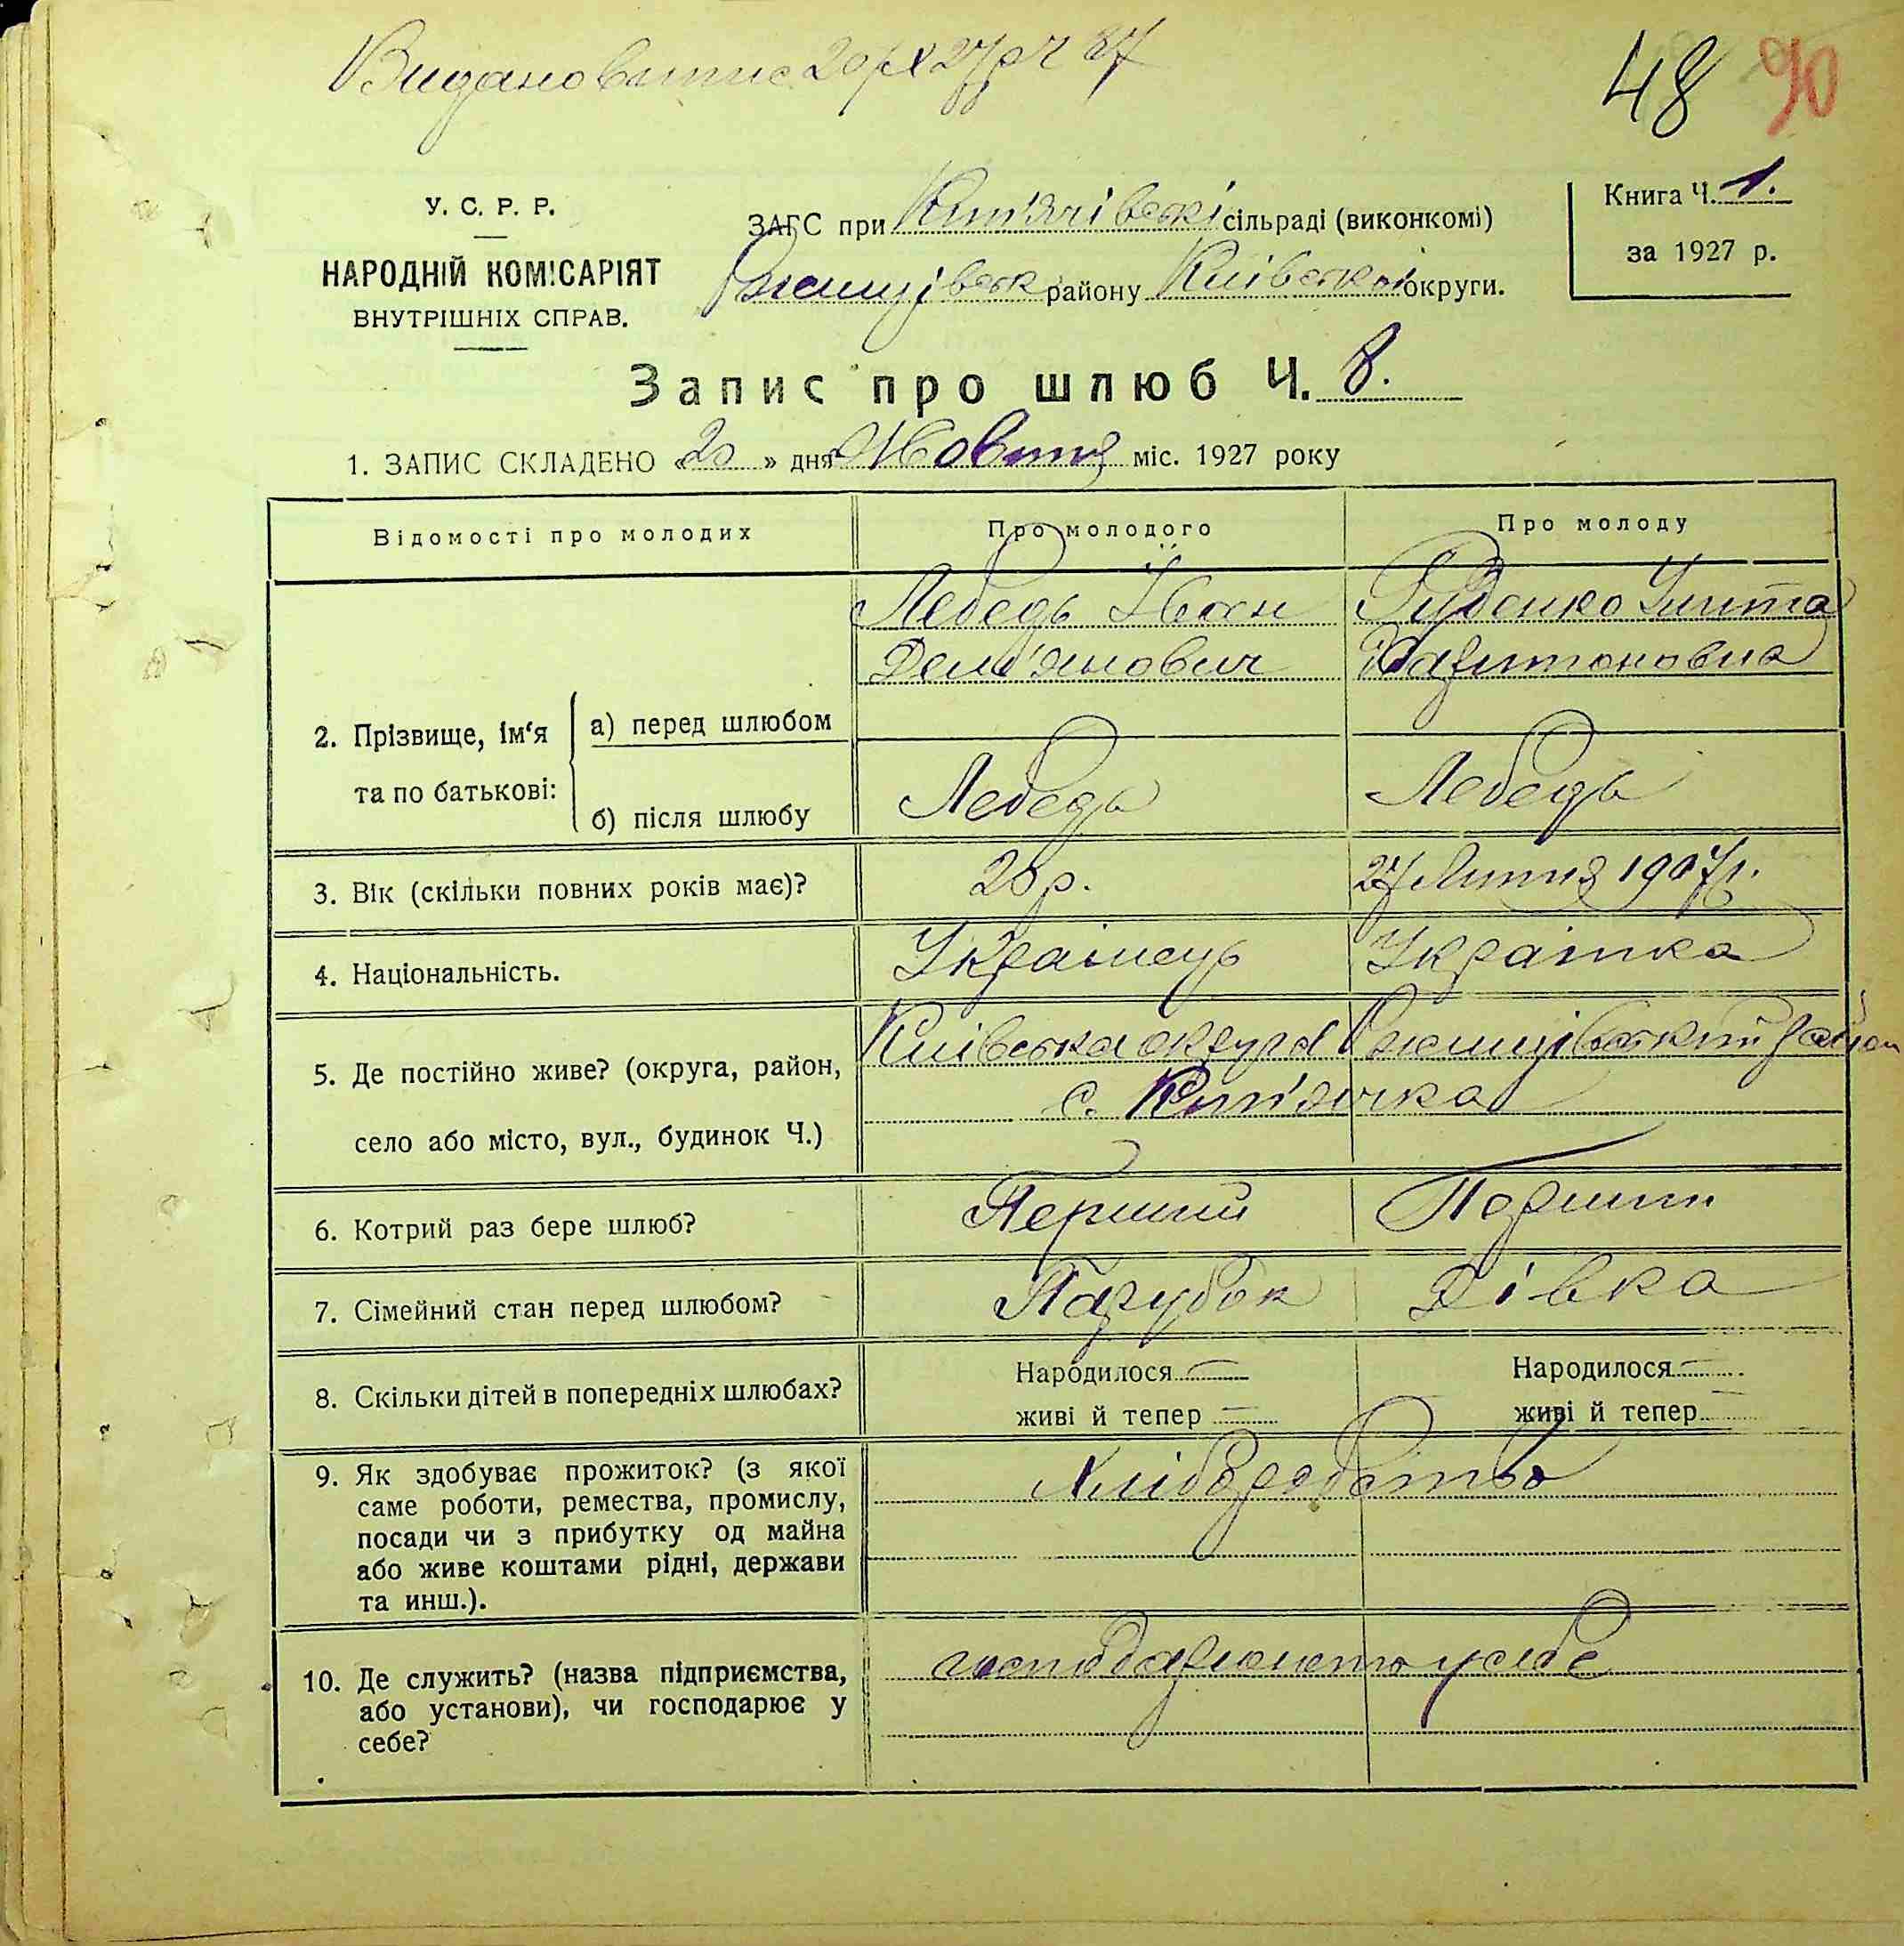 Видано витис 20/X 27р Ч 87
48 90
У. С. Р. Р.
НАРОДНІЙ КОМІСАРІЯТ
ВНУТРІШНІХ СПРАВ.
ЗАГС при Кип'ячівські сільраді (виконкомі)
Ржищівськ району Київської округи.
Книга Ч. 1.
за 1927 р.
Запис про шлюб Ч. 8.
1. ЗАПИС СКЛАДЕНО «20» дня Жовтня міс. 1927 року
Відомості про молодих Про молодого Про молоду
2. Прізвище, ім‘я та по батькові:
а) перед шлюбом
Лебедь Іван
Дем'янович
Руденко Улита
Харитоновна
б) після шлюбу Лебедь Лебедь
3. Вік (скільки повних років має)? 20 р. 27 Липня 1907 р.
4. Національність. Українець Українка
5. Де постійно живе? (округа, район,
село або місто, вул., будинок Ч.)
Київська округа Ржищівський район
с. Кип'ячка
6. Котрий раз бере шлюб? Перший Перший
7. Сімейний стан перед шлюбом? Парубок Дівка
8. Скільки дітей в попередніх шлюбах?
Народилося — Народилося —
живі й тепер — живі й тепер —
9. Як здобуває прожиток? (з якої
саме роботи, ремества, промислу,
посади чи з прибутку од майна
або живе коштами рідні, держави
та инш.).
Хліборобство
10. Де служить? (назва підприємства,
або установи), чи господарює у
себе?
господарюють у себе